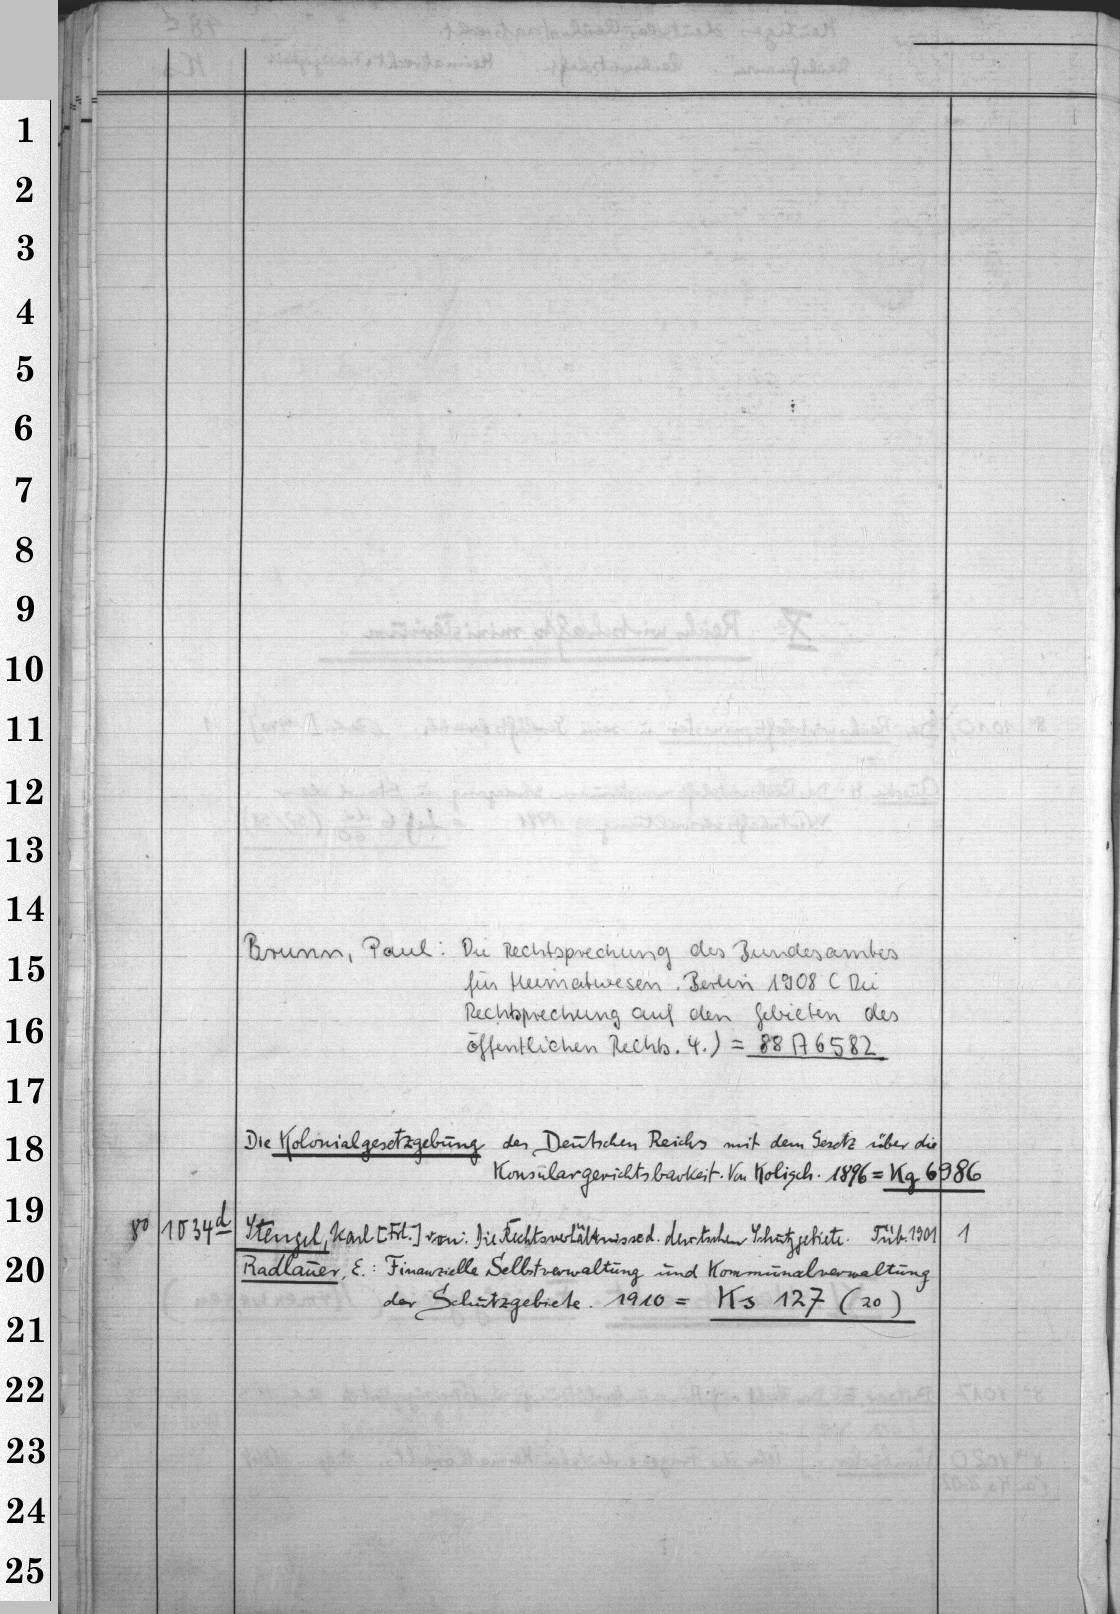 1
2
3
4
5
6
7
8
9
10
11
12
13
14
Brunn, Paul: Die Rechtsprechung des Bundesamtes
15
für Heimatwesen. Berlin 1908 (Die
Rechtsprechung auf den Gebieten des
16
öffentlichen Rechts. 4.) = 88 A 6582
17
18
Die Kolonialgesetzgebung des Deutschen Reichs mit dem Gesetz über die
Konsulargerichtsbarkeit. Von Kolisch. 1896 = Kg 6986
19
8° 1034d Stengel, Karl [Frh.] von: Die Rechtsverhältnisse d. deutschen Schutzgebiete. Tüb. 1901 1
20
Radlauer, E.: Finanzielle Selbstverwaltung und Kommunalverwaltung
der Schutzgebiete. 1910 = Ks 127 (20)
21
22
23
24
25